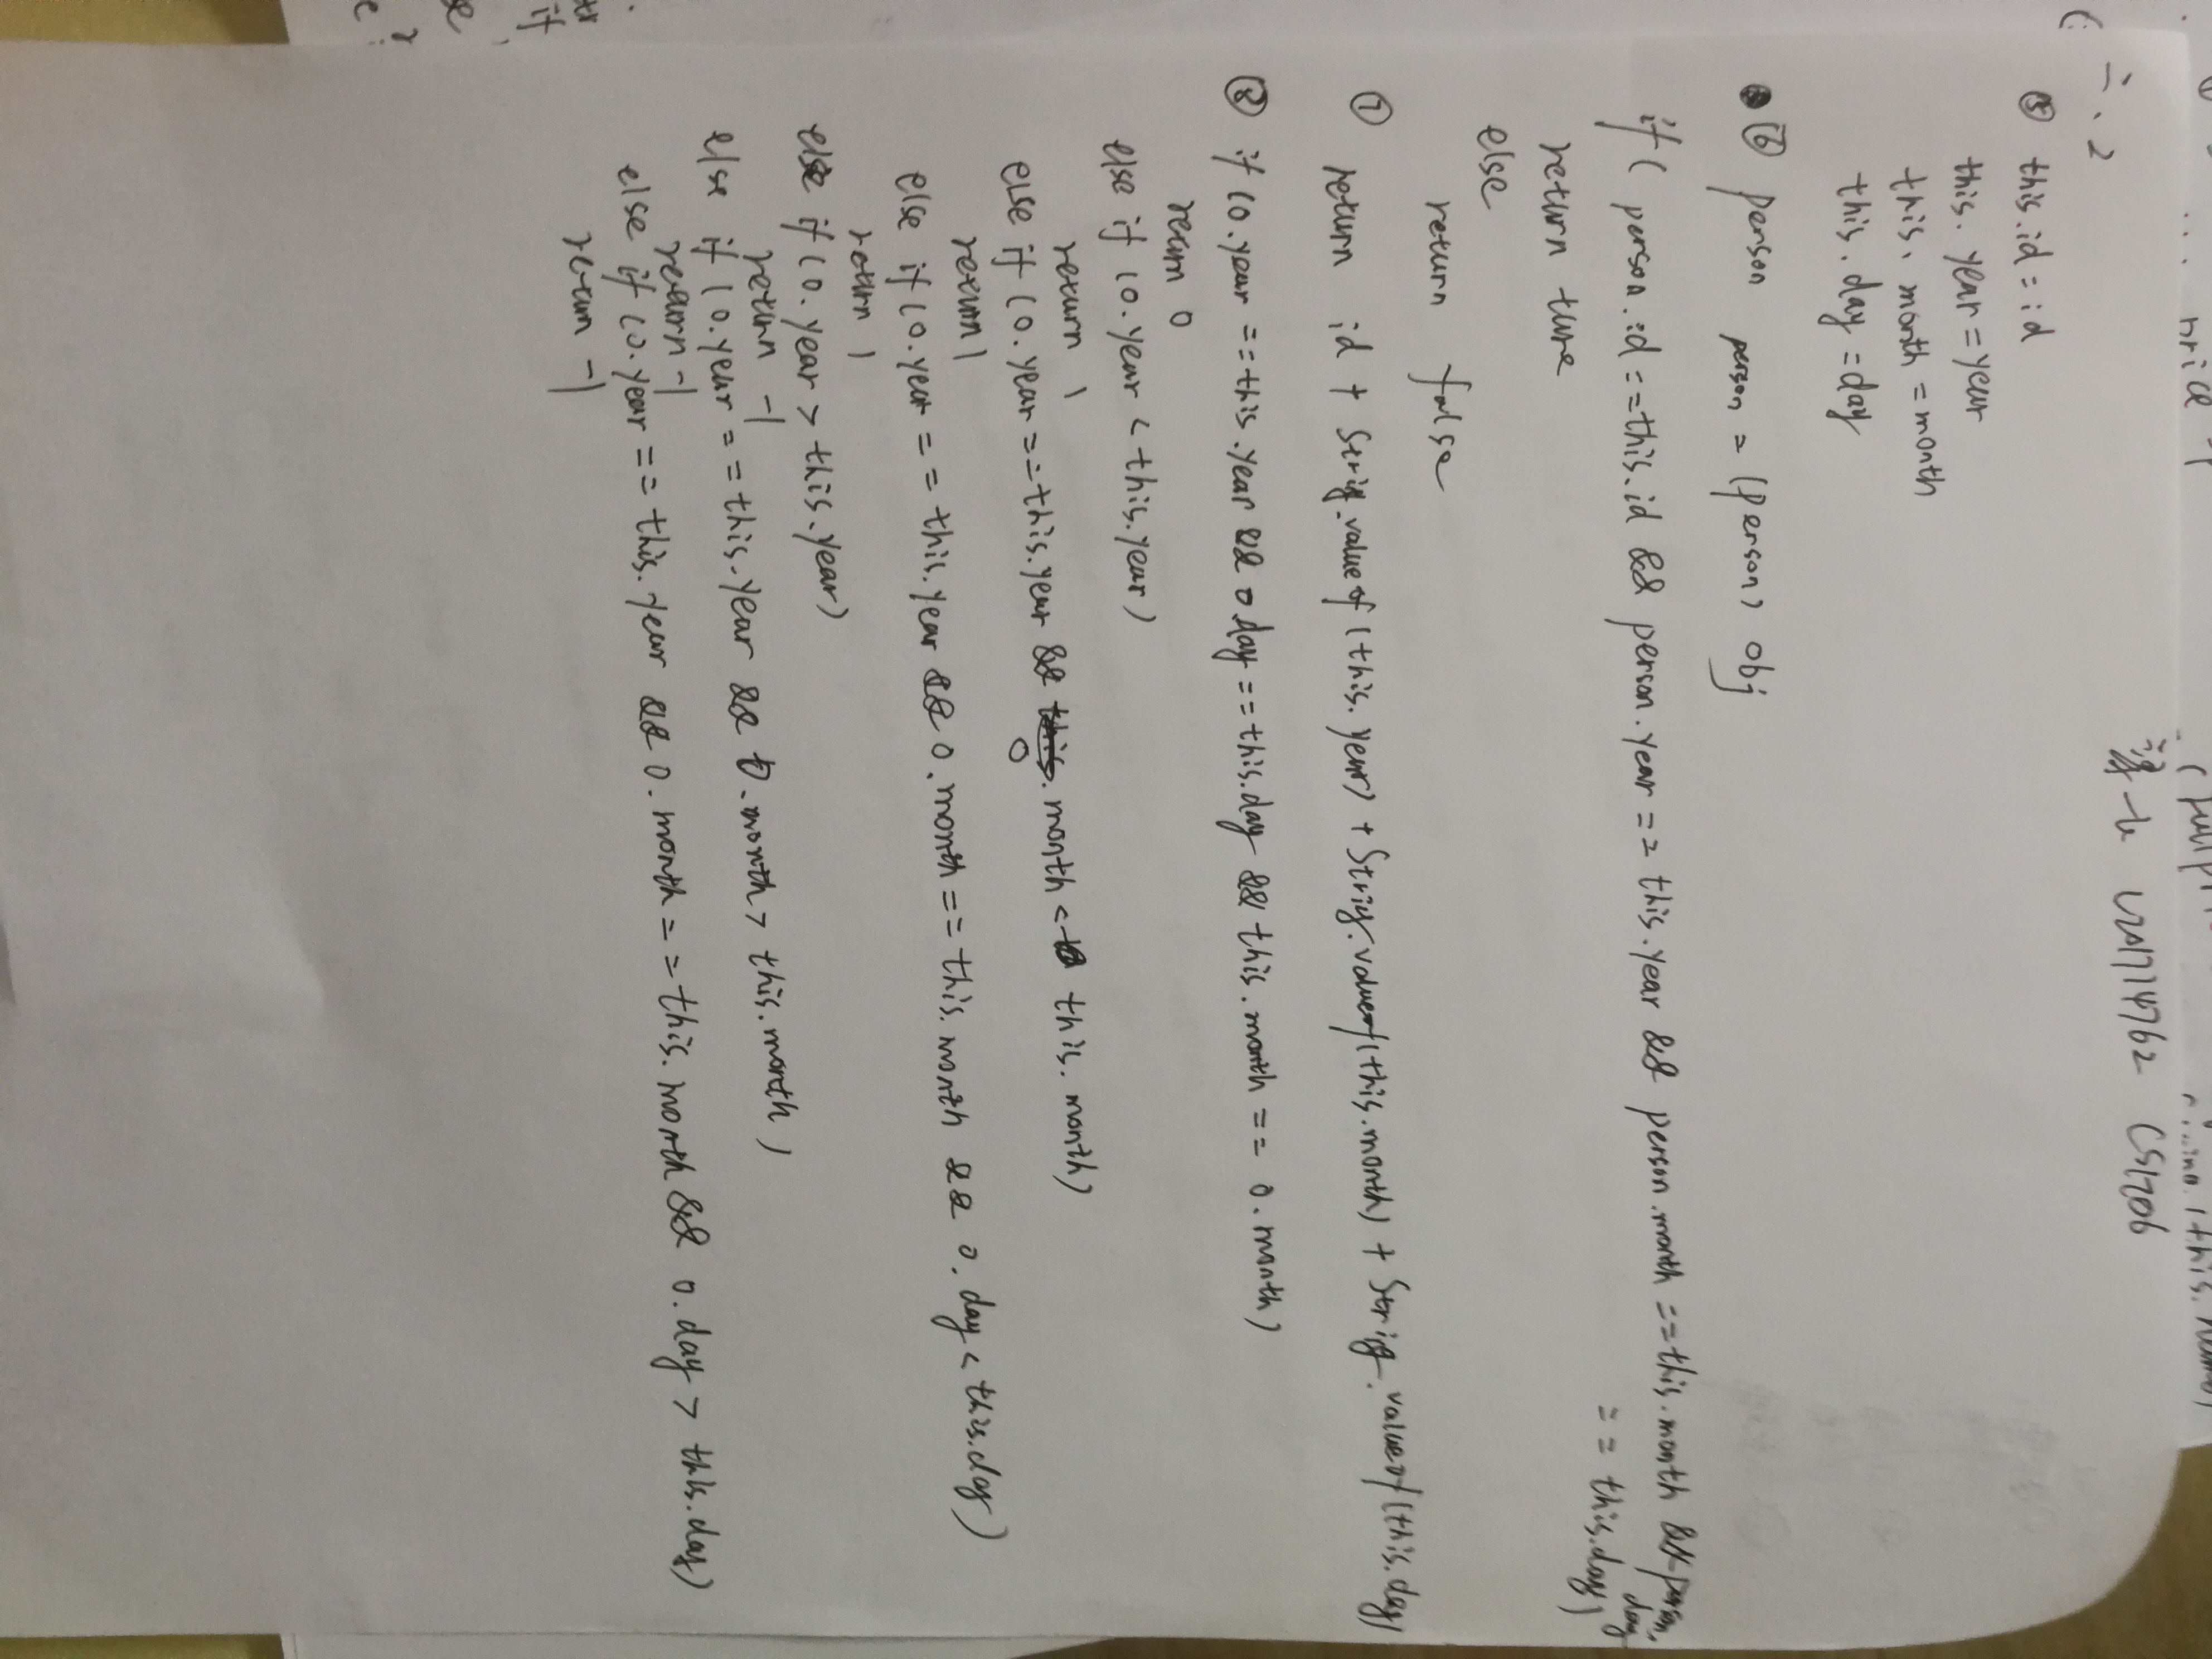 二、2
U201714762 CS1706
⑤ this.id = id
this.year = year
this.month = month
this.day = day
⑥ person person = (person) obj
if ( person.id == this.id && person.year == this.year && person.month == this.month && person.day
== this.day)
return ture
else
return false
⑦ return id + String.valueof(this.year) + String.valueof(this.month) + String.valueof(this.day)
⑧ if (o.year == this.year && o.day == this.day && this.month == o.month)
return 0
else if (o.year < this.year)
return 1
else if (o.year == this.year && o.month < this.month)
return 1
else if (o.year == this.year && o.month == this.month && o.day < this.day)
return 1
else if (o.year > this.year)
return -1
else if (o.year == this.year && o.month > this.month)
return -1
else if (o.year == this.year && o.month == this.month && o.day > this.day)
return -1